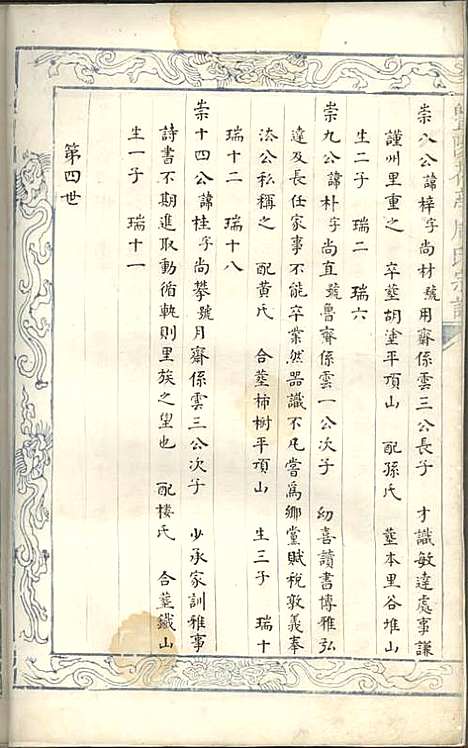 崇八公諱梓字尚材號用齋係雲三公長子　才識敏達處事謙
謹州里重之　卒葬胡塗平項山　配孫氏　葬本里谷堆山
生二子　瑞二　瑞六
崇九公諱朴字尚直號魯齋係雲一公次子　幼喜讀書博雅弘
達及長任家事不能卒業然器識不凡嘗爲鄉黨賦稅敦義奉
法公私稱之　配黃氏　合葬柿樹平項山　生三子　瑞十
瑞十二　瑞十八
崇十四公諱桂字尚攀號月齋係雲三公次子　少承家訓雅事
詩書不期進取動循軌則里族之望也　配樓氏　合葬鐵山
生一子　瑞十一
第四世